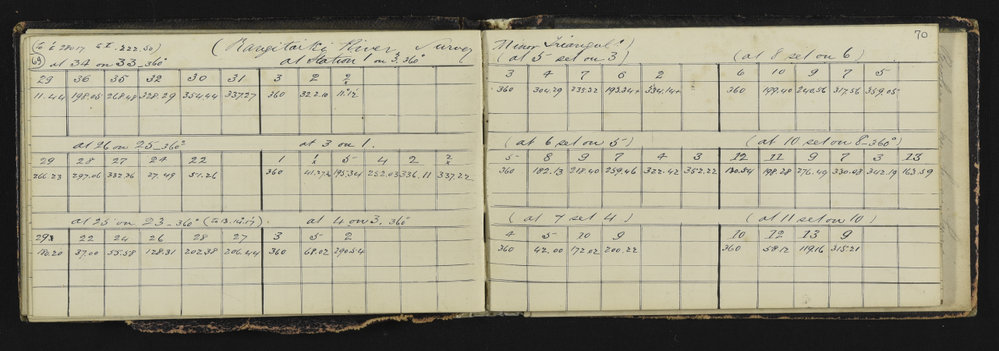 (Rangitaiki River Survey
69
at 34 on 33_360° at station 1 on 3, 360°
29 36 35 32 30 31 3 2 2
11.44 198.05 268.48 328.29 354.44 337.27 360 322.10
at 26 on 25_360° at 3 on 1.
29 28 27 24 22 1 5 4 2
266.23 297.06 332.36 27.49 51.26 360 195.34 252.03 336.11 337.22
at 25 on 23_360° at 4 on 3, 360°
29 22 24 26 28 27 3 5 2
180.20 37.00 55.58 128.31 202.38 206.44 360 68.02 290.54
70
Minor Triangul
(at 5 set on 3) (at 8 set on 6)
3 4 7 6 2 6 10 9 7 5
360 304.29 235.32 360 199.40 240.56 317.56 359.05
(at 6 set on 5) (at 10 set on 8_360°)
5 8 9 7 4 3 12 11 9 7 3 13
360 182.13 218.40 259.46 322.42 352.22 198.28 276.49 330.08 342.19 163.59
(at 7 set 4) (at 11 set on 10)
4 5 10 9 10 12 13 9
360 42.00 172.02 200.22 360 58.12 119.16 315.21